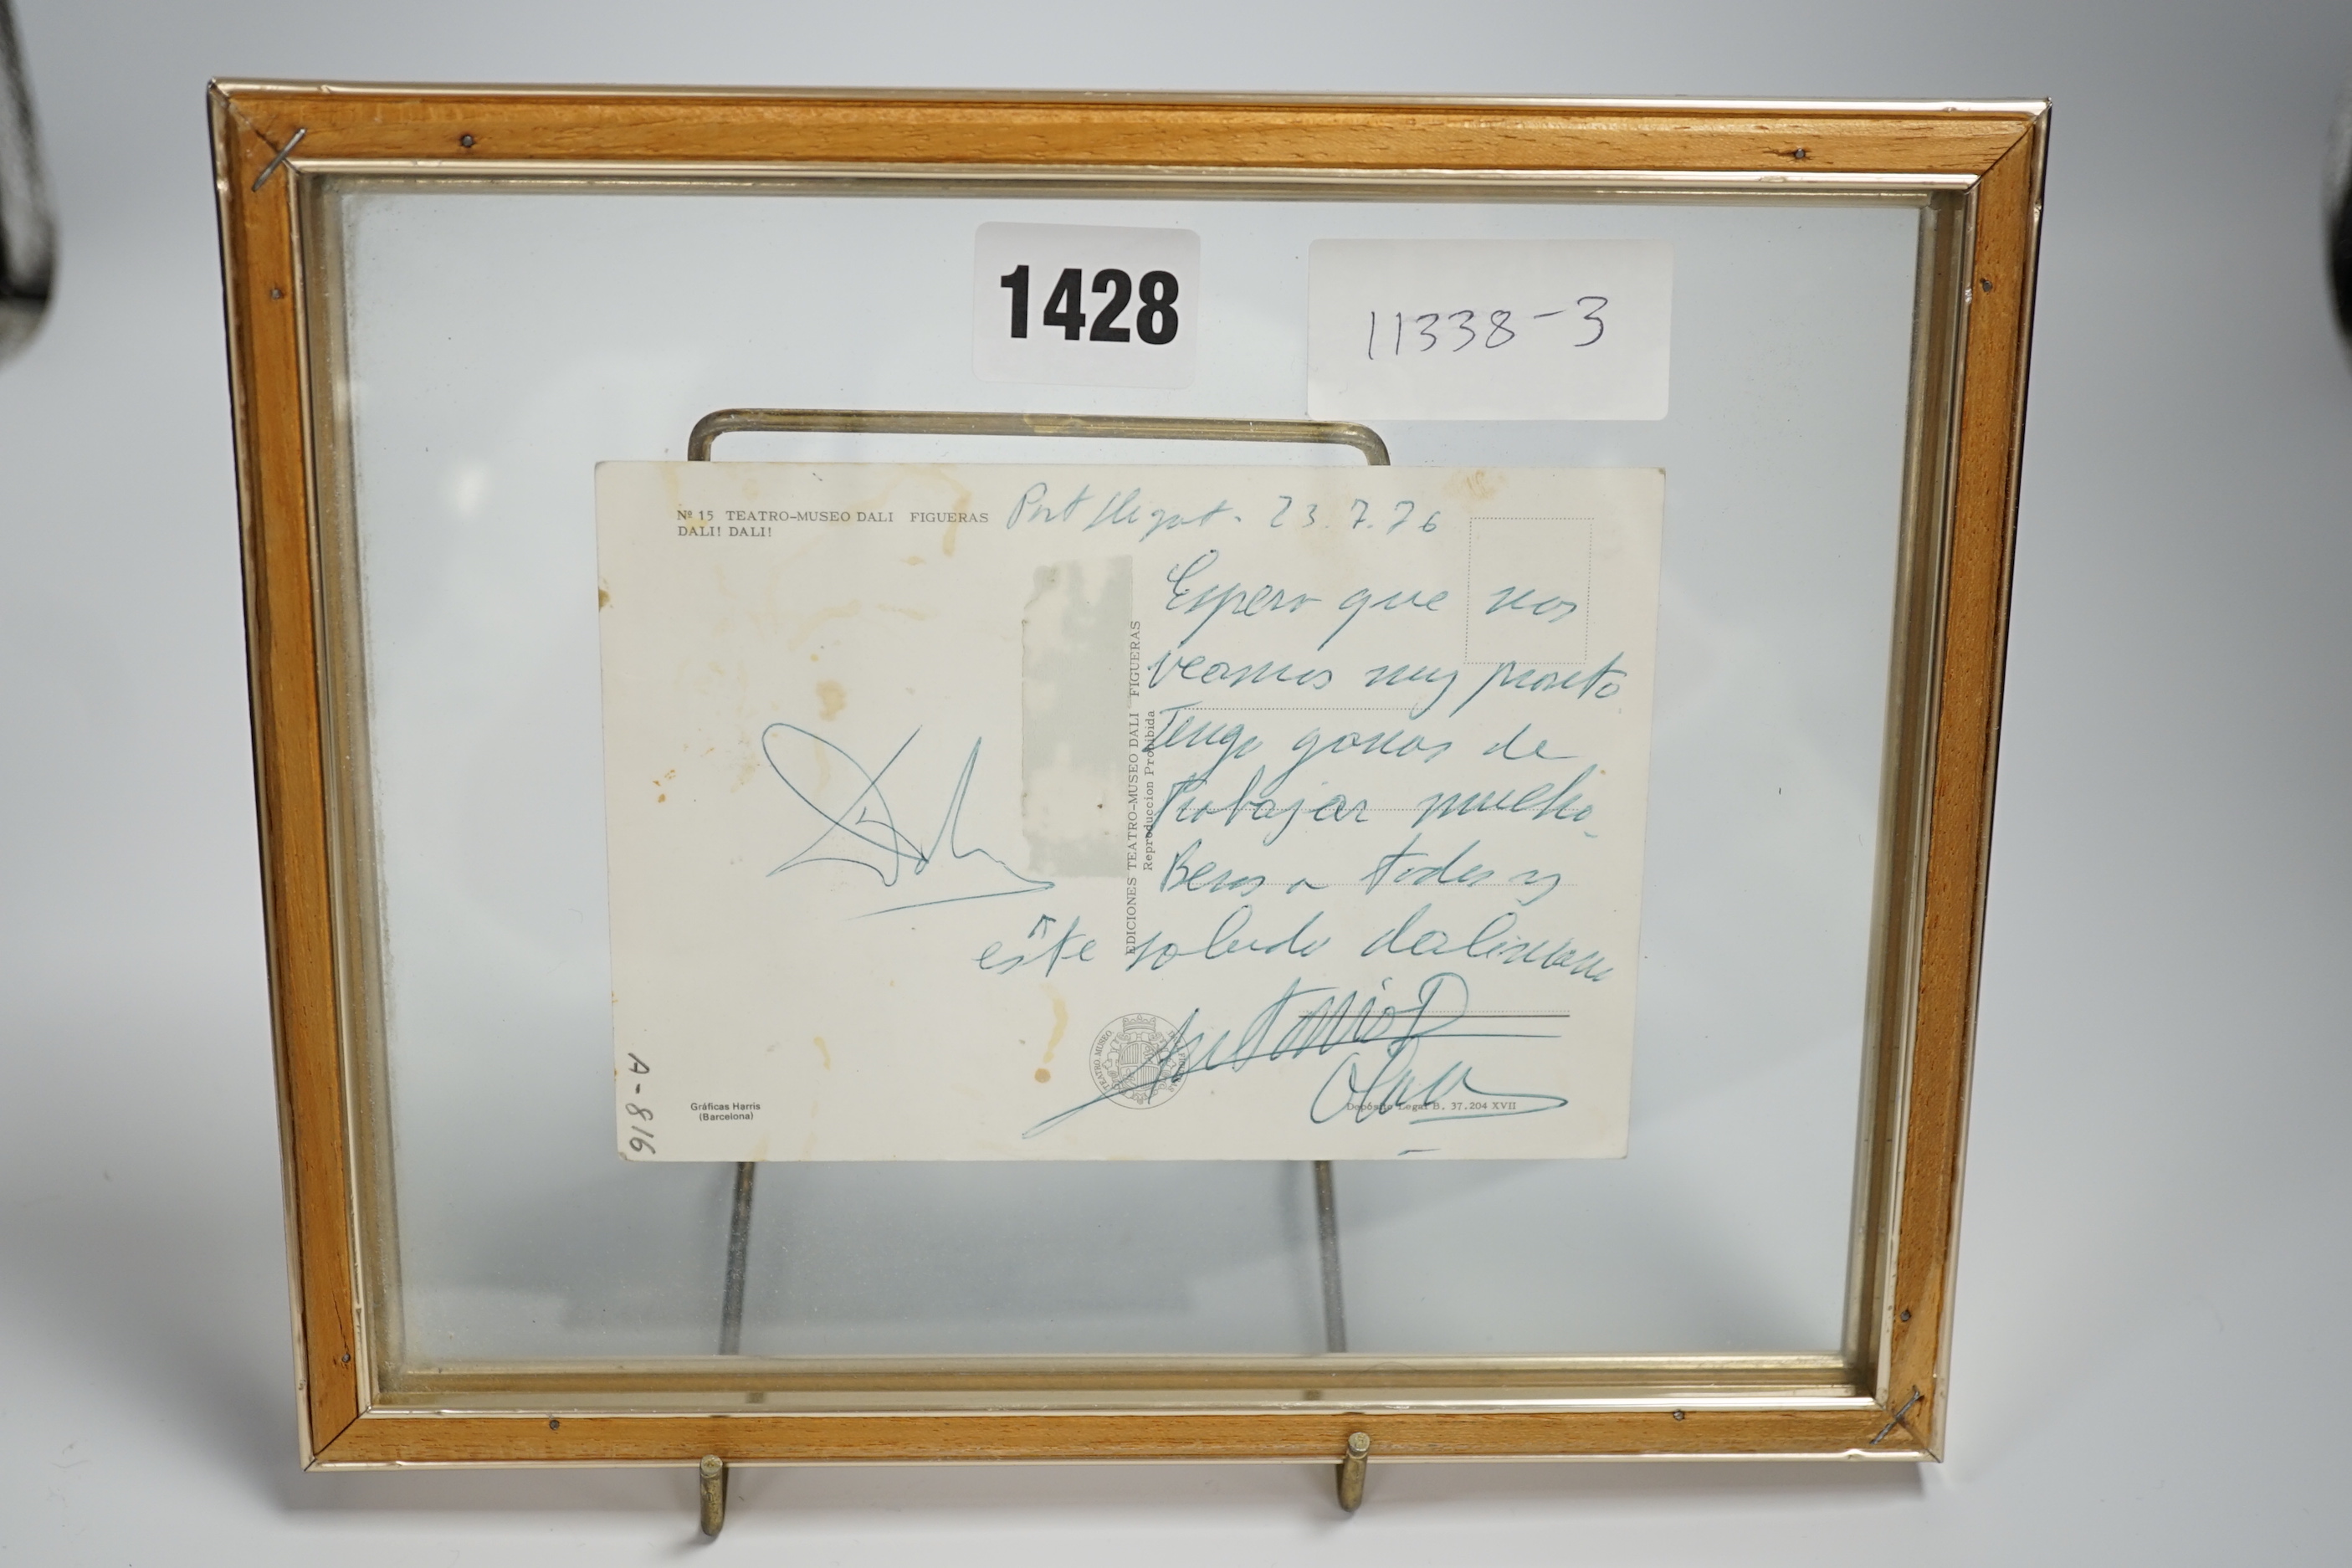 1428
11338-3
Nº 15 TEATRO-MUSEO DALI FIGUERAS
DALI! DALI!
Port Lligat. 23.7.76
Espero que nos
veamos muy pronto
Tengo ganas de
trabajar mucho.
Besos a todos y
este saludo daliniano
Antonio D
Olano
EDICIONES TEATRO-MUSEO DALI FIGUERAS
Reproduccion Prohibida
TEATRO MUSEO
Gráficas Harris
(Barcelona)
Depósito Legal B. 37.204 XVII
A-816